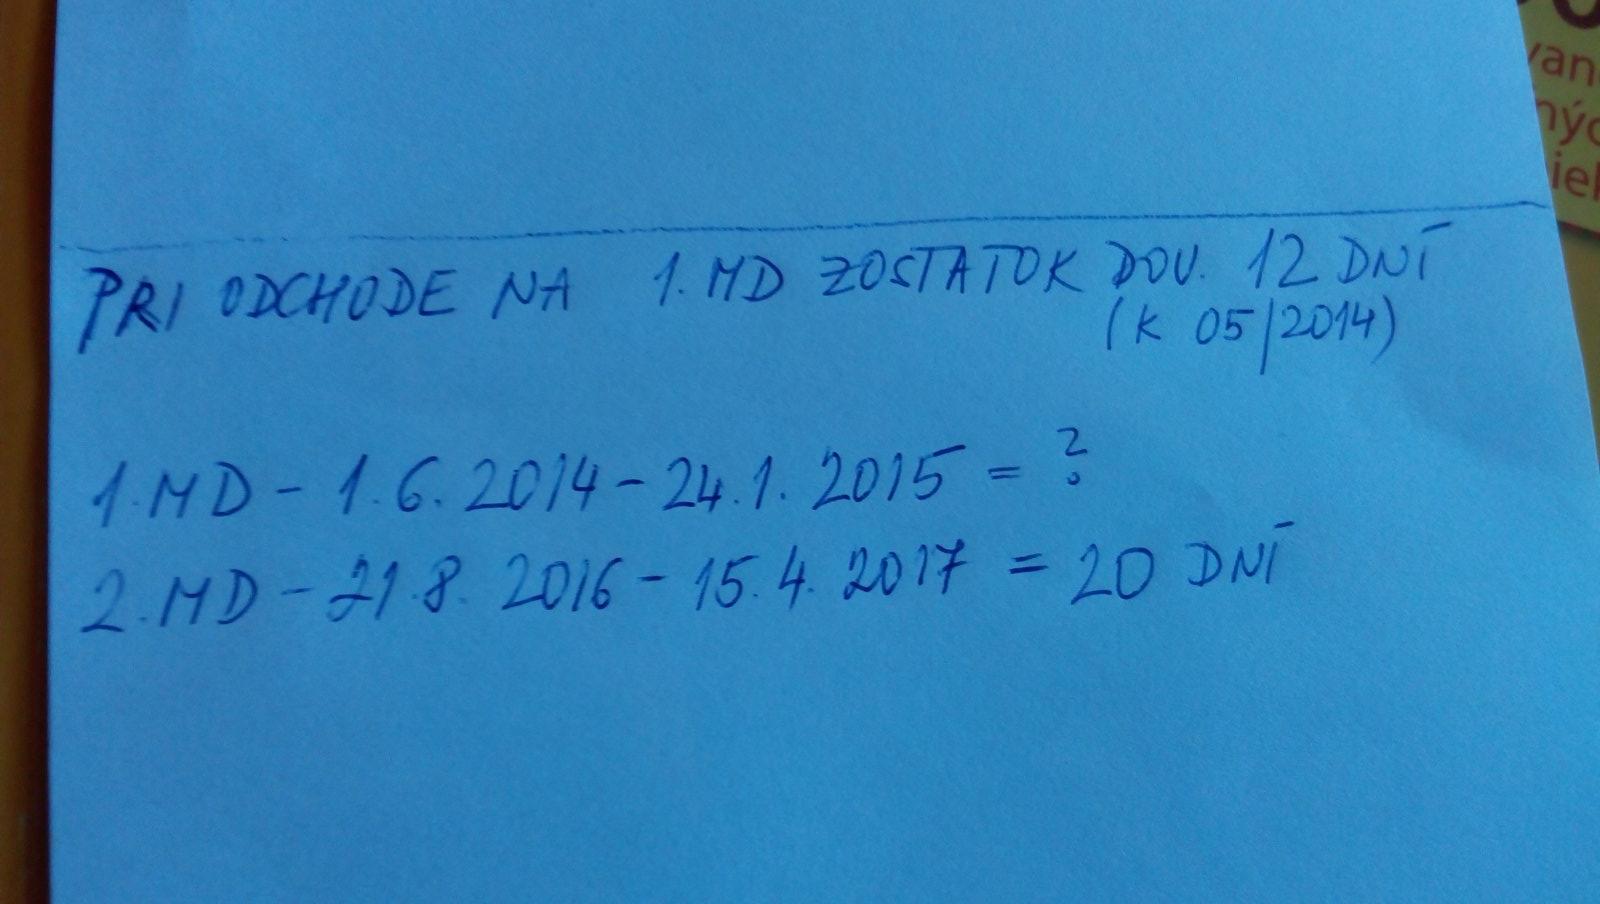 PRI ODCHODE NA 1. MD ZOSTATOK DOV. 12 DNÍ
(K 05/2014)
1. MD - 1. 6. 2014 - 24. 1. 2015 = ?
2. MD - 21. 8. 2016 - 15. 4. 2017 = 20 DNÍ